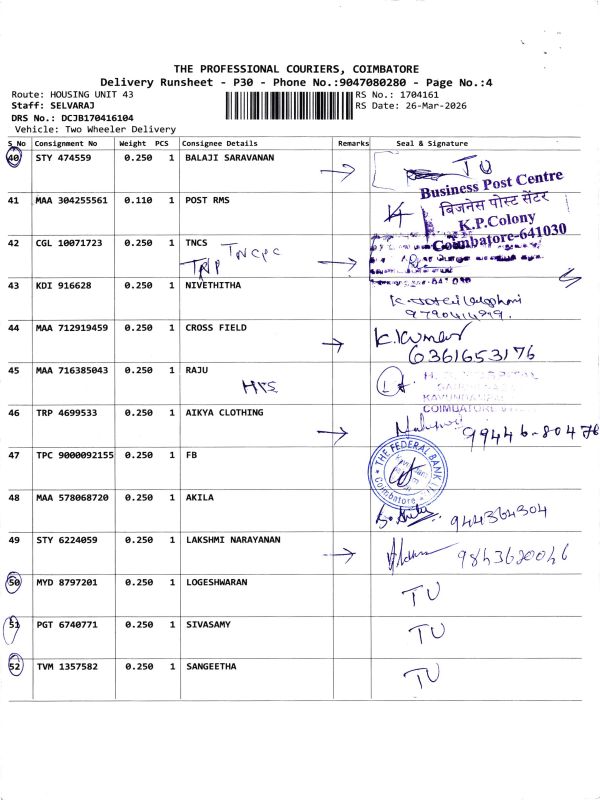 THE PROFESSIONAL COURIERS, COIMBATORE
Delivery Runsheet - P30 - Phone No.:9047080280 - Page No.:4
Route: HOUSING UNIT 43 RS No.: 1704161
Staff: SELVARAJ RS Date: 26-Mar-2026
DRS No.: DCJB170416104
Vehicle: Two Wheeler Delivery
S_No Consignment No Weight PCS Consignee Details Remarks Seal & Signature
40 STY 474559 0.250 1 BALAJI SARAVANAN TU
Business Post Centre
बिजनेस पोस्ट सेंटर
K.P.Colony
Coimbatore-641030
41 MAA 304255561 0.110 1 POST RMS
42 CGL 10071723 0.250 1 TNCS TNCPC
TNP
43 KDI 916628 0.250 1 NIVETHITHA
44 MAA 712919459 0.250 1 CROSS FIELD K.Kumar
6361653176
45 MAA 716385043 0.250 1 RAJU
COIMBATORE
46 TRP 4699533 0.250 1 AIKYA CLOTHING 99446-80476
47 TPC 9000092155 0.250 1 FB
THE FEDERAL BANK LTD
Coimbatore
48 MAA 578068720 0.250 1 AKILA 944364304
49 STY 6224059 0.250 1 LAKSHMI NARAYANAN 9843620046
50 MYD 8797201 0.250 1 LOGESHWARAN TU
51 PGT 6740771 0.250 1 SIVASAMY TU
52 TVM 1357582 0.250 1 SANGEETHA TU